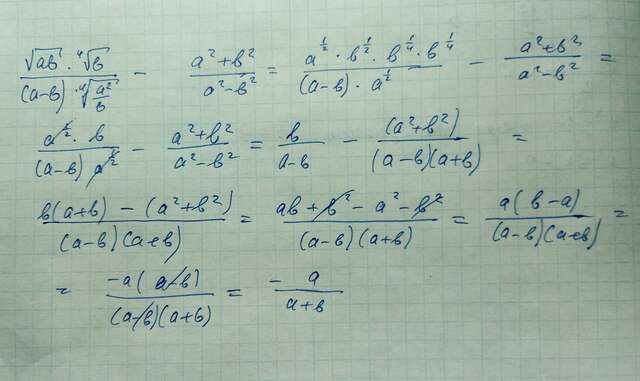 \frac{\sqrt{ab} \cdot \sqrt[4]{b}}{(a-b) \cdot \sqrt[4]{\frac{a^2}{b}}} - \frac{a^2+b^2}{a^2-b^2} = \frac{a^{\frac{1}{2}} \cdot b^{\frac{1}{2}} \cdot b^{\frac{1}{4}} \cdot b^{\frac{1}{4}}}{(a-b) \cdot a^{\frac{1}{2}}} - \frac{a^2+b^2}{a^2-b^2} =
\frac{a^{\frac{1}{2}} \cdot b}{(a-b) a^{\frac{1}{2}}} - \frac{a^2+b^2}{a^2-b^2} = \frac{b}{a-b} - \frac{(a^2+b^2)}{(a-b)(a+b)} =
\frac{b(a+b) - (a^2+b^2)}{(a-b)(a+b)} = \frac{ab+b^2-a^2-b^2}{(a-b)(a+b)} = \frac{a(b-a)}{(a-b)(a+b)} =
= \frac{-a(a-b)}{(a-b)(a+b)} = -\frac{a}{a+b}